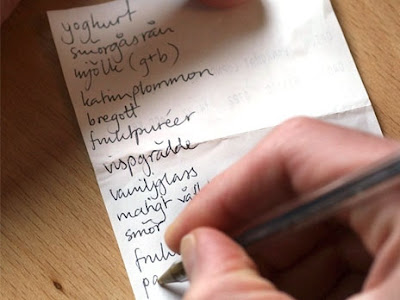 yoghurt
smörgåsrån
mjölk (g+b)
katrinplommon
bregott
fruktpuréer
vispgrädde
vaniljglass
matigt
smör
pa